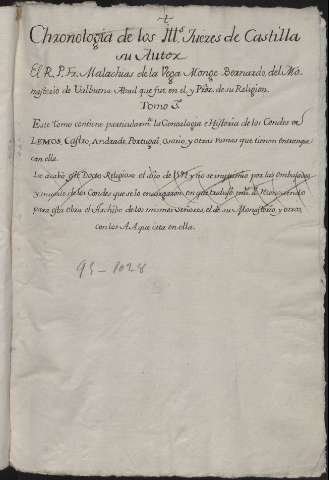 Chronologia de los Ill.s Juezes de Castilla
su Autor
El R. P. Fr. Malachias de la Vega Monge Bernardo, del Mo-
nasterio de Valbuena Abad que fue en el, y de su Religion.
Tomo 3.
Este tomo contiene particularm.te la Genealogia e Historia de los Condes de
LEMOS, Castro, Andrade Portugal, Osorio y otras Ramas que tienen entronque
con ella.
Le acabó este Docto Religioso el año de y no se imprimio por las embaxadas
y muerte de los Condes que se lo encargaron, en que trabajo reconociendo
para esta obra el Archibo de los mismos Señores, el de su Monasterio, y otros
con los A.A. que cita en ella.
95-1028